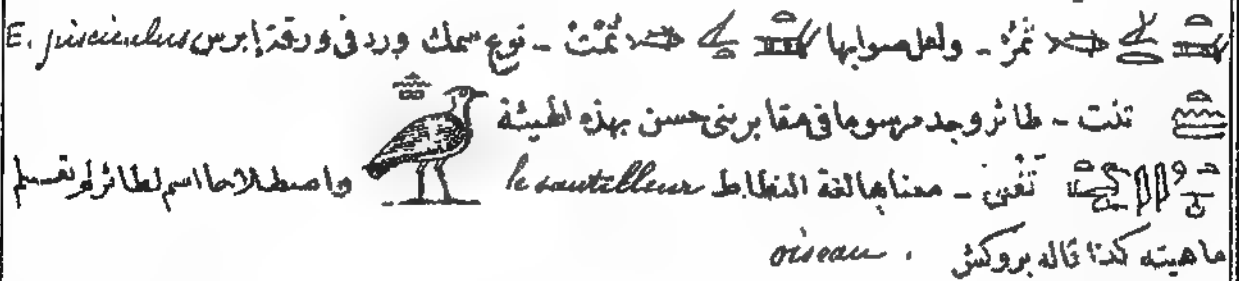 تمز - ولعل صوابها تمت - نوع سمك ورد فى ورقة إبرس E. pisciculus
تنت - طائر وجد مرسوما فى مقابر بنى حسن بهذه الهيئة
تنفى - معناها لغة النطاط le sautilleur واصطلاحا اسم لطائر لم تعلم
ماهيته كذا قاله بروكش . oiseau